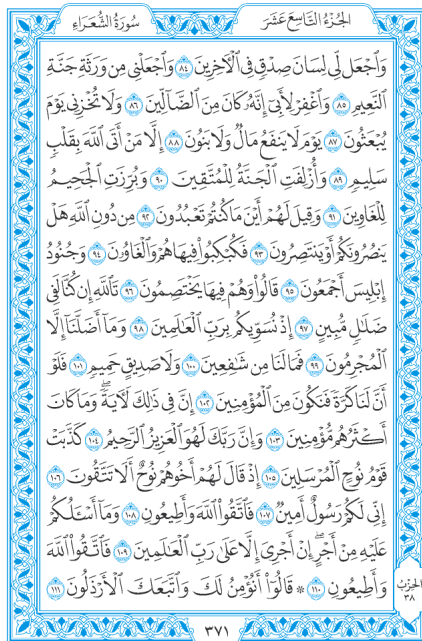 الجُزْءُ التَّاسِعَ عَشَرَ
سُورَةُ الشُّعَرَاءِ
وَٱجْعَل لِّي لِسَانَ صِدْقٖ فِي ٱلۡأٓخِرِينَ ٨٤ وَٱجۡعَلۡنِي مِن وَرَثَةِ جَنَّةِ
ٱلنَّعِيمِ ٨٥ وَٱغۡفِرۡ لِأَبِيٓ إِنَّهُۥ كَانَ مِنَ ٱلضَّآلِّينَ ٨٦ وَلَا تُخۡزِنِي يَوۡمَ
يُبۡعَثُونَ ٨٧ يَوۡمَ لَا يَنفَعُ مَالٞ وَلَا بَنُونَ ٨٨ إِلَّا مَنۡ أَتَى ٱللَّهَ بِقَلۡبٖ
سَلِيمٖ ٨٩ وَأُزۡلِفَتِ ٱلۡجَنَّةُ لِلۡمُتَّقِينَ ٩٠ وَبُرِّزَتِ ٱلۡجَحِيمُ
لِلۡغَاوِينَ ٩١ وَقِيلَ لَهُمۡ أَيۡنَ مَا كُنتُمۡ تَعۡبُدُونَ ٩٢ مِن دُونِ ٱللَّهِ هَلۡ
يَنصُرُونَكُمۡ أَوۡ يَنتَصِرُونَ ٩٣ فَكُبۡكِبُواْ فِيهَا هُمۡ وَٱلۡغَاوُۥنَ ٩٤ وَجُنُودُ
إِبۡلِيسَ أَجۡمَعُونَ ٩٥ قَالُواْ وَهُمۡ فِيهَا يَخۡتَصِمُونَ ٩٦ تَٱللَّهِ إِن كُنَّا لَفِي
ضَلَٰلٖ مُّبِينٍ ٩٧ إِذۡ نُسَوِّيكُم بِرَبِّ ٱلۡعَٰلَمِينَ ٩٨ وَمَآ أَضَلَّنَآ إِلَّا
ٱلۡمُجۡرِمُونَ ٩٩ فَمَا لَنَا مِن شَٰفِعِينَ ١٠٠ وَلَا صَدِيقٍ حَمِيمٖ ١٠١ فَلَوۡ
أَنَّ لَنَا كَرَّةٗ فَنَكُونَ مِنَ ٱلۡمُؤۡمِنِينَ ١٠٢ إِنَّ فِي ذَٰلِكَ لَأٓيَةٗۖ وَمَا كَانَ
أَكۡثَرُهُم مُّؤۡمِنِينَ ١٠٣ وَإِنَّ رَبَّكَ لَهُوَ ٱلۡعَزِيزُ ٱلرَّحِيمُ ١٠٤ كَذَّبَتۡ
قَوۡمُ نُوحٍ ٱلۡمُرۡسَلِينَ ١٠٥ إِذۡ قَالَ لَهُمۡ أَخُوهُمۡ نُوحٌ أَلَا تَتَّقُونَ ١٠٦
إِنِّي لَكُمۡ رَسُولٌ أَمِينٞ ١٠٧ فَٱتَّقُواْ ٱللَّهَ وَأَطِيعُونِ ١٠٨ وَمَآ أَسۡـَٔلُكُمۡ
عَلَيۡهِ مِنۡ أَجۡرٍۖ إِنۡ أَجۡرِيَ إِلَّا عَلَىٰ رَبِّ ٱلۡعَٰلَمِينَ ١٠٩ فَٱتَّقُواْ ٱللَّهَ
وَأَطِيعُونِ ١١٠ ۞ قَالُوٓاْ أَنُؤۡمِنُ لَكَ وَٱتَّبَعَكَ ٱلۡأَرۡذَلُونَ ١١١
الحِزْبُ
٣٨
٣٧١